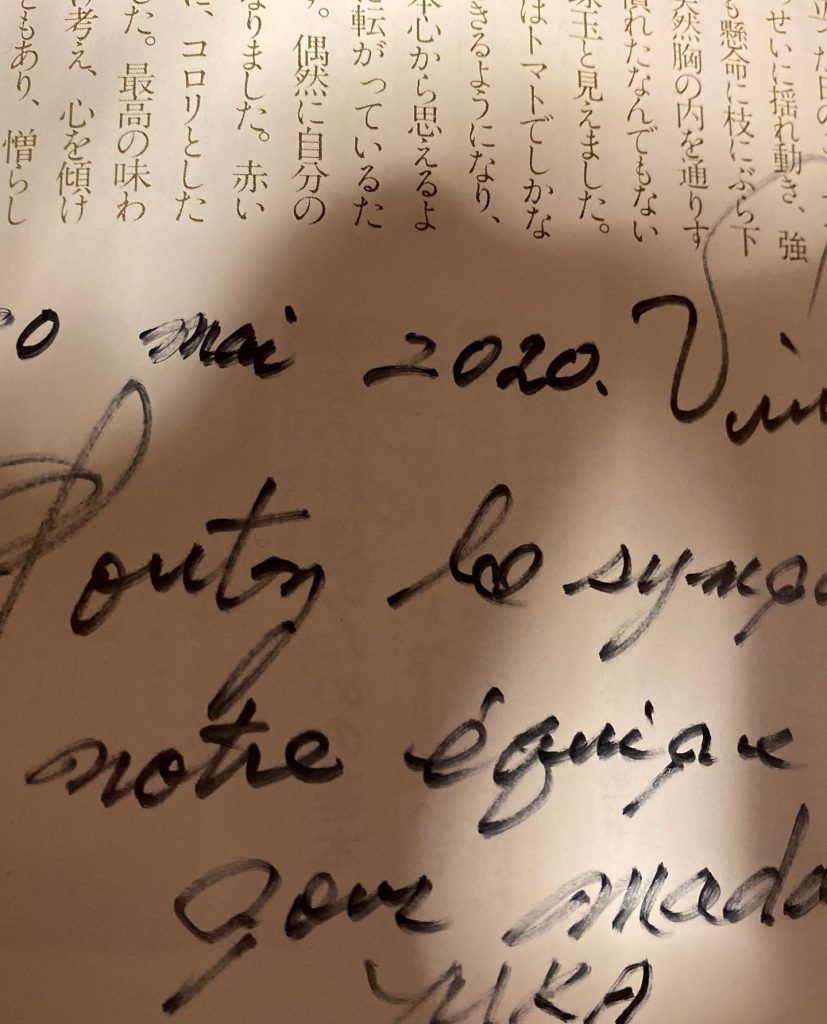 せいに揺れ動き、強
も懸命に枝にぶら下
突然胸の内を通りす
慣れたなんでもない
玉と見えました。
はトマトでしかな
きるようになり、
本心から思えるよ
に転がっているた
。偶然に自分の
なりました。赤い
に、コロリとした
した。最高の味わ
考え、心を傾け
ともあり、憎らし
0 mai 2020.
sympa
notre équipe
pour mada
YUKA